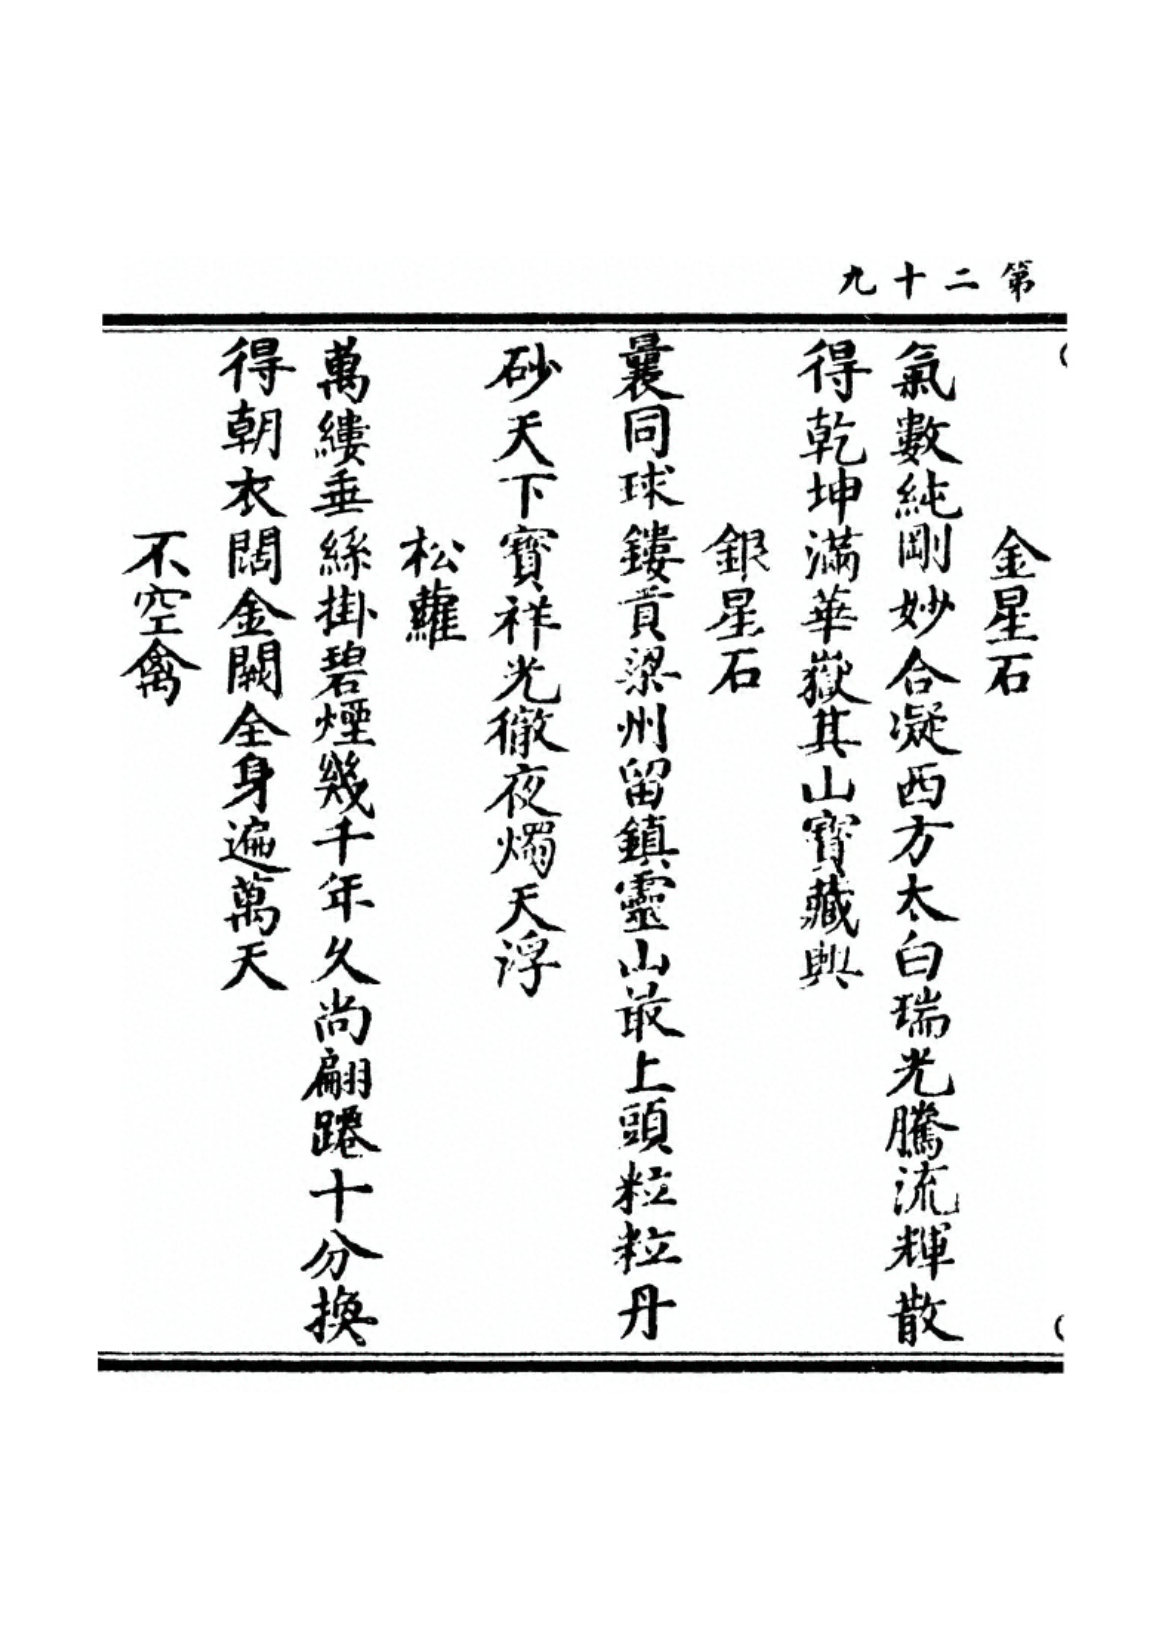 第二十九
金星石
氣數純剛妙合凝西方太白瑞光騰流輝散
得乾坤滿華嶽其山寶藏興
銀星石
曩同球鏤貢梁州留鎮靈山最上頭粒粒丹
砂天下寶祥光徹夜燭天浮
松蘿
萬縷垂絲掛碧煙幾千年久尚翩躚十分換
得朝衣闊金闕全身遍萬天
不空禽